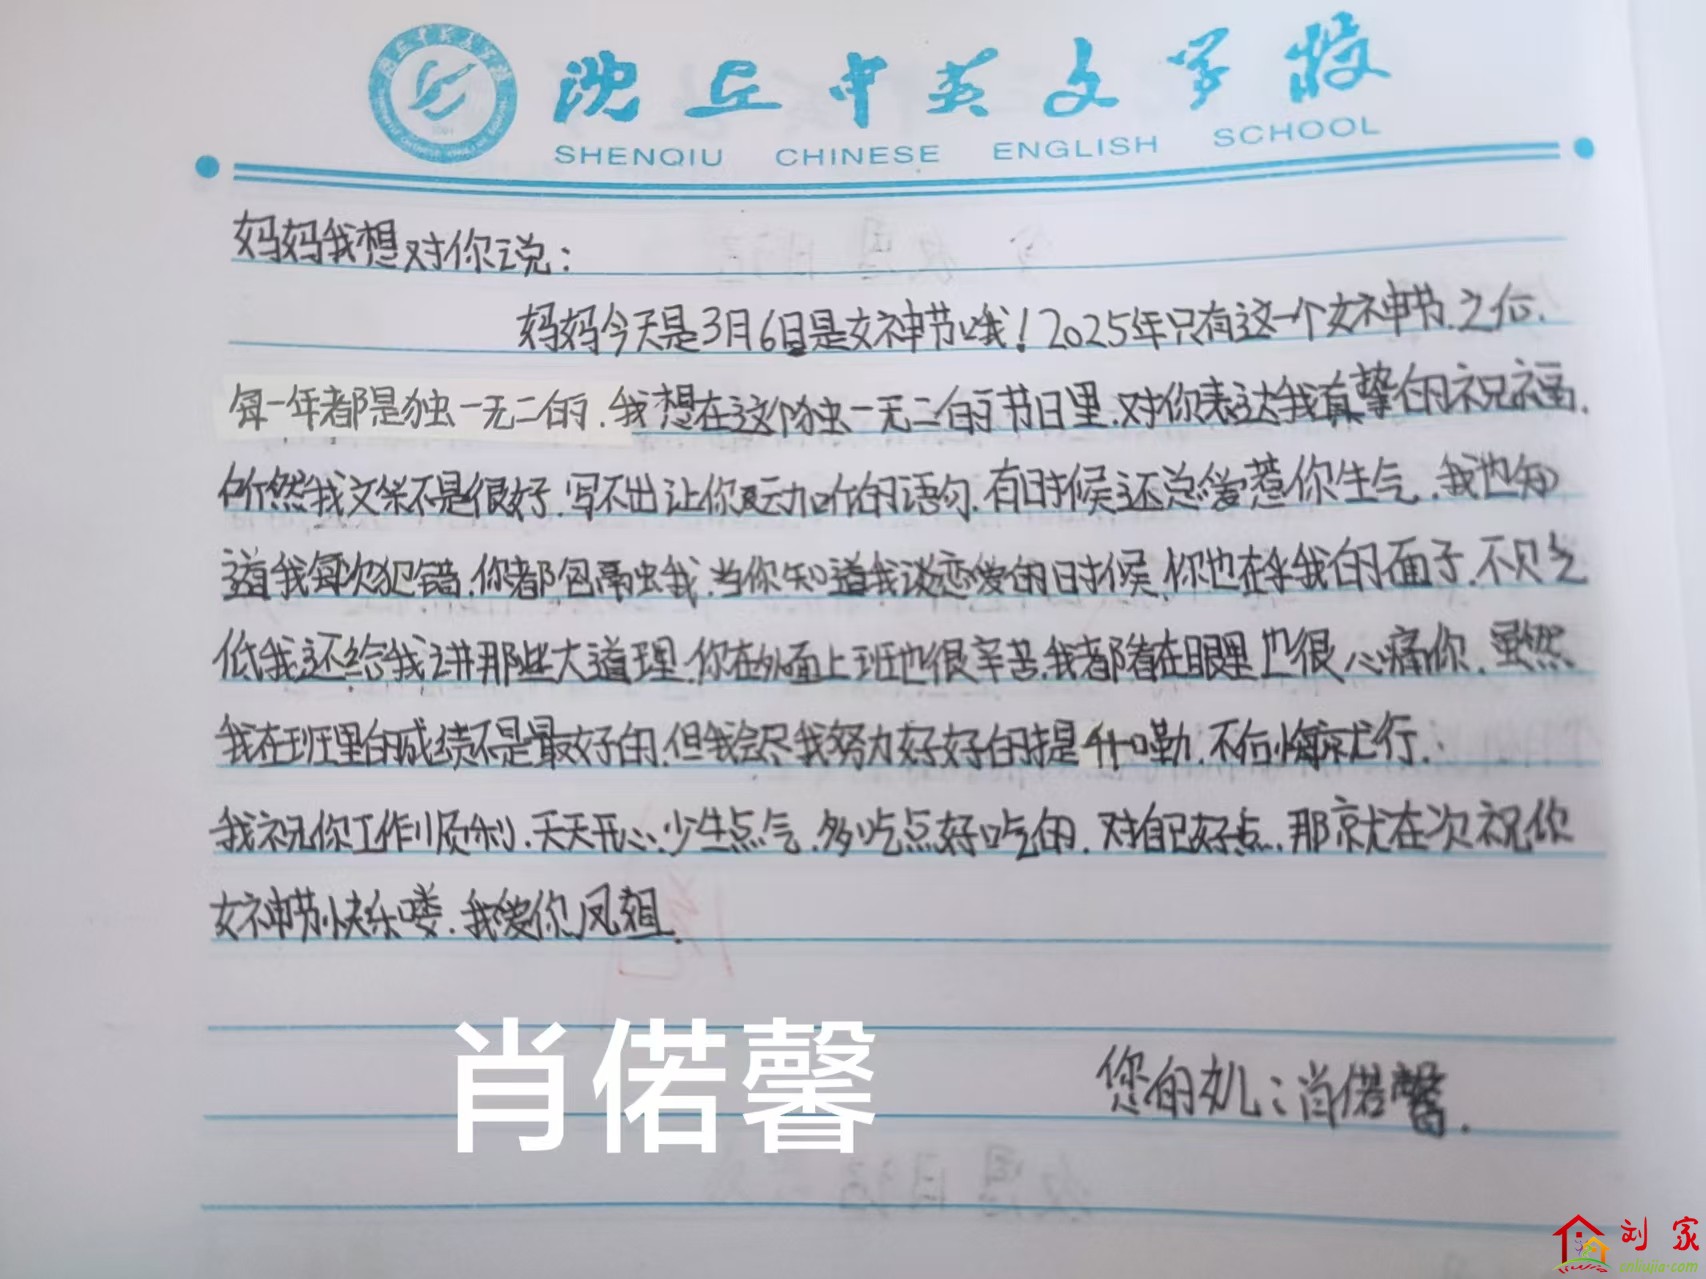 沈丘中英文学校
SHENQIU CHINESE ENGLISH SCHOOL
妈妈我想对你说：
妈妈今天是3月6日是女神节哦！2025年只有这一个女神节.之后.
每一年都是独一无二的.我想在这个独一无二的节日里.对你表达我真挚的祝福.
虽然我文采不是很好.写不出让你感动的语句.有时候还总爱惹你生气.我也知
道我每次犯错.你都包容我.当你知道我谈恋爱的时候.你也在乎我的面子.不贬
低我还给我讲那些大道理.你在外面上班也很辛苦.我都看在眼里也很心痛你.虽然
我在班里的成绩不是最好的.但我会尽我努力好好的提升嘞.不后悔就行.
我祝你工作顺利.天天开心.少生点气.多吃点好吃的.对自己好点.那就在次祝你
女神节快乐喽.我爱你凤姐.
肖偌馨
您的女儿：肖偌馨.
刘家
cnliujia.com